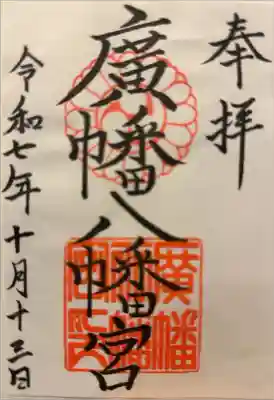 奉拝
廣幡八幡宮
令和七年十月十三日